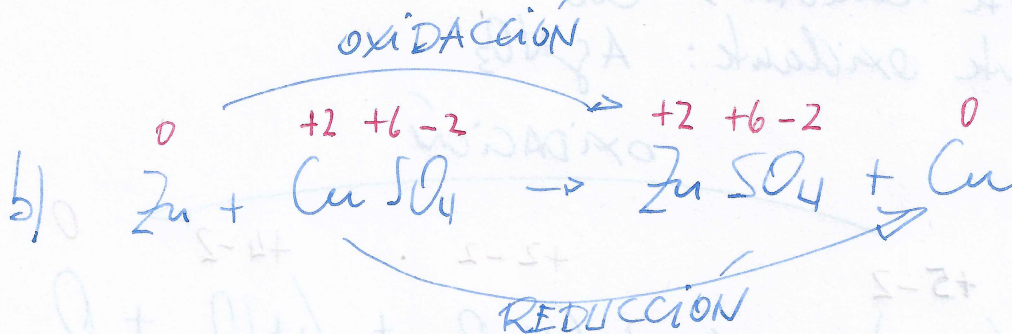 OXIDACCIÓN
0 +2 +6 -2 +2 +6 -2 0
b) Zn + CuSO4 → ZnSO4 + Cu
REDUCCIÓN